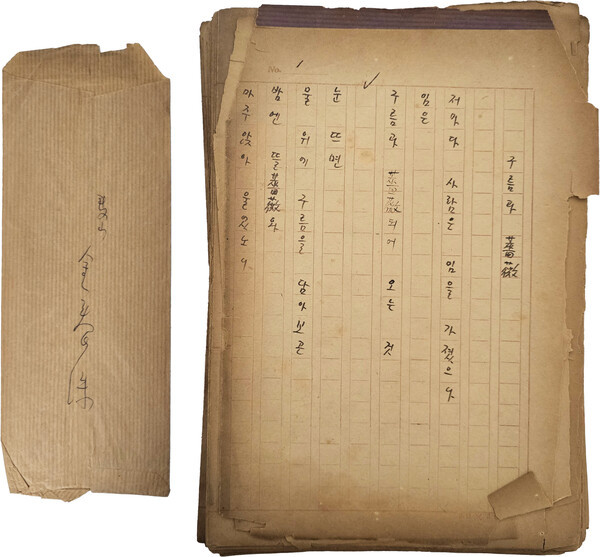 金春洙
No. 1
구름과 薔薇
저마다 사람은 임을 가졌으나
임은
구름과 薔薇되어 오는 것
눈 뜨면
물 위에 구름을 담아보곤
밤엔 뜰 薔薇와
마주 앉아 울었노니